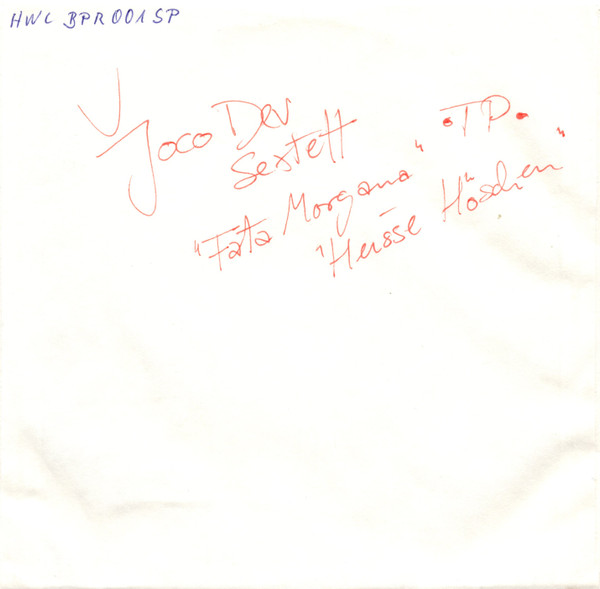 HWC BPR 001 SP
Joco Dev
Sextett
•TP•
"Fata Morgana"
"Heisse Höschen"